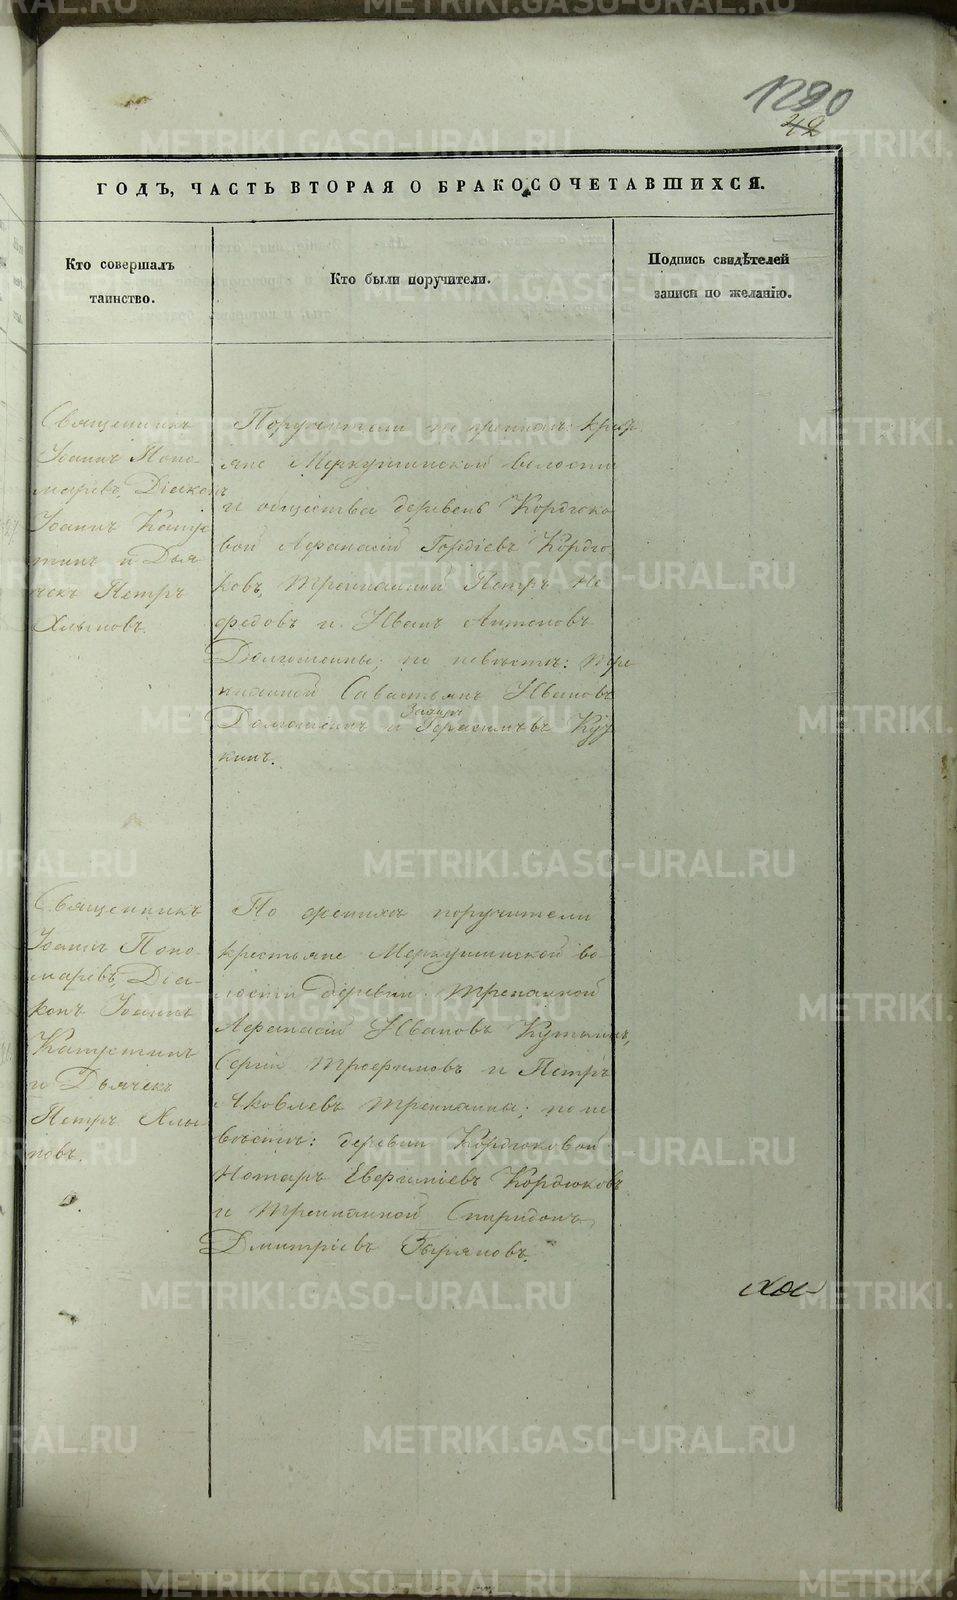 1290
42
ГОДЪ, ЧАСТЬ ВТОРАЯ О БРАКОСОЧЕТАВШИХСЯ.
Кто совершалъ
таинство.
Кто были поручители.
Подпись свидѣтелей
записи по желанію.
Священникъ
Іоаннъ Поно-
маревъ, Діаконъ
Іоаннъ Капус
тинъ и Дья
чекъ Петръ
Хлыновъ.
Поручители по женихѣ: крестъ
яне Меркушинской волости
и общества деревень Кордюко
вой Аѳанасій Гордіевъ Кордю
ковъ, Трепалной Петръ Не
федовъ и Иванъ Антоновъ
по невѣстѣ:
Савастьянъ Ивановъ
и Герасимъвъ
кинъ.
Священникъ
Іоаннъ Поно-
маревъ, Діа-
конъ Іоаннъ
Капустинъ
и Дьячекъ
Петръ Хлы-
новъ.
По женихѣ поручители
крестьяне Меркушинской во
лости деревни
Аѳанасій Ивановъ
Сергій Трофимовъ и Петръ
Яковлевъ по не
вѣстѣ: деревни Кордюковой
Евгеніевъ Кордюковъ
и Спиридонъ
Дмитріевъ Зыряновъ.
METRIKI.GASO-URAL.RU